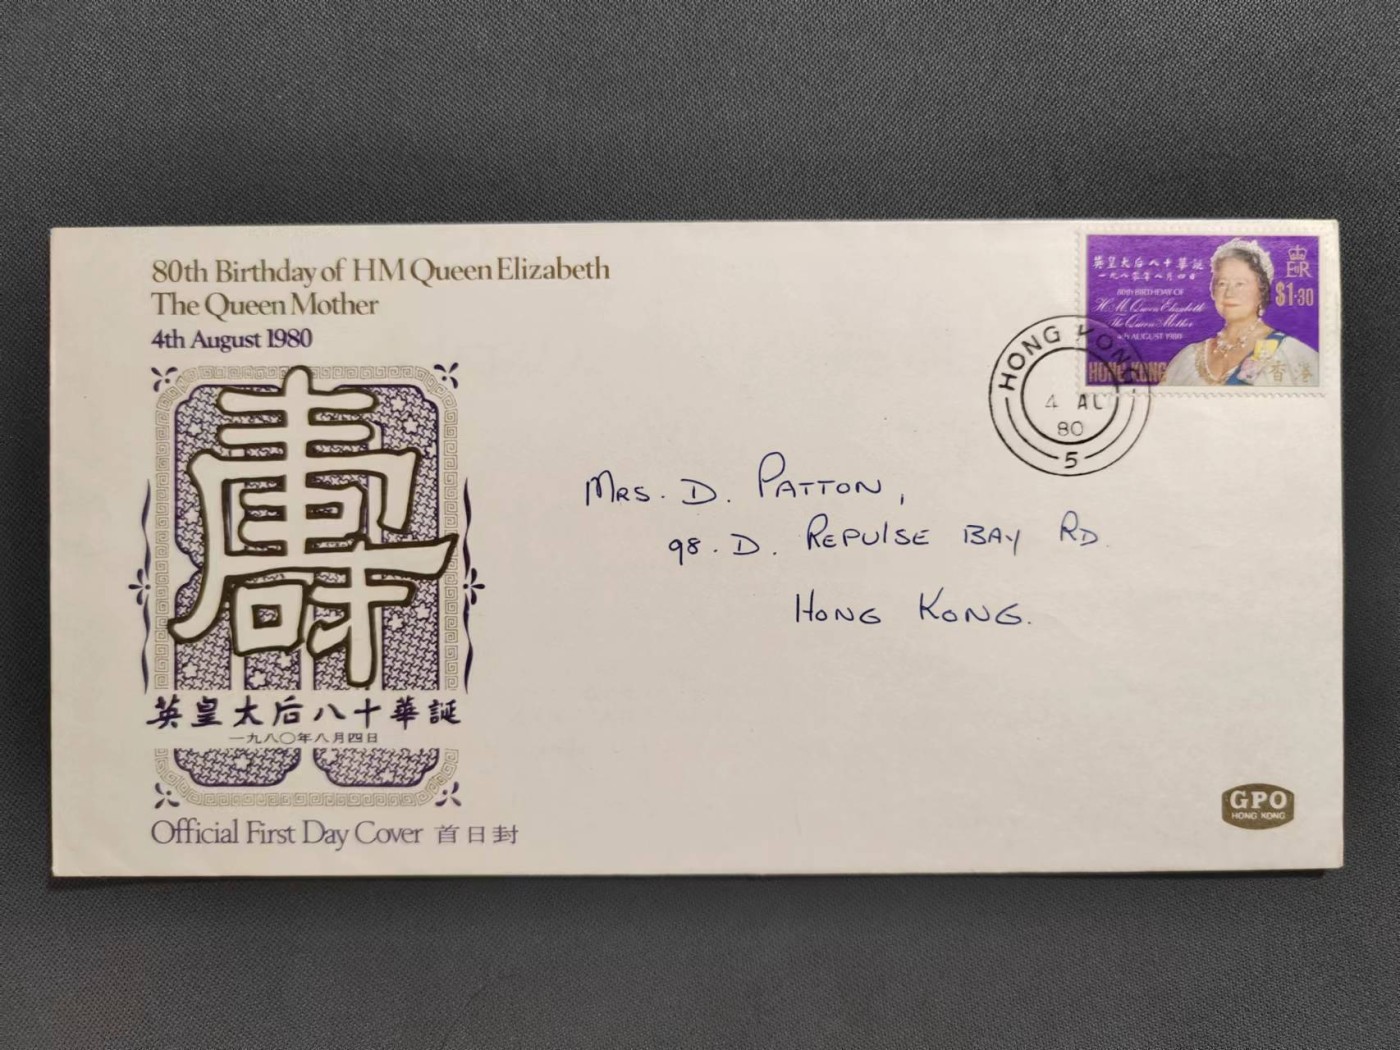 80th Birthday of HM Queen Elizabeth
The Queen Mother
4th August 1980
壽
英皇太后八十華誕
一九八〇年八月四日
Official First Day Cover 首日封
英皇太后八十華誕
一九八零年八月四日
80TH BIRTHDAY OF
H.M. Queen Elizabeth
The Queen Mother
4th AUGUST 1980
HONG KONG
E II R
$1·30
香港
HONG KONG
4 AU
80
5
MRS. D. PATTON,
98. D. REPULSE BAY RD.
HONG KONG.
GPO
HONG KONG